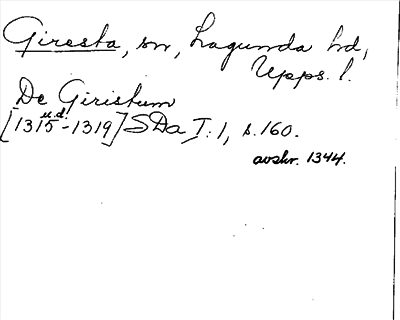 Giresta, sn, Lagunda hd,
Upps. l.
De Giristum
u.d.
[1315-1319] SDa I:1, s.160.
avskr. 1344.